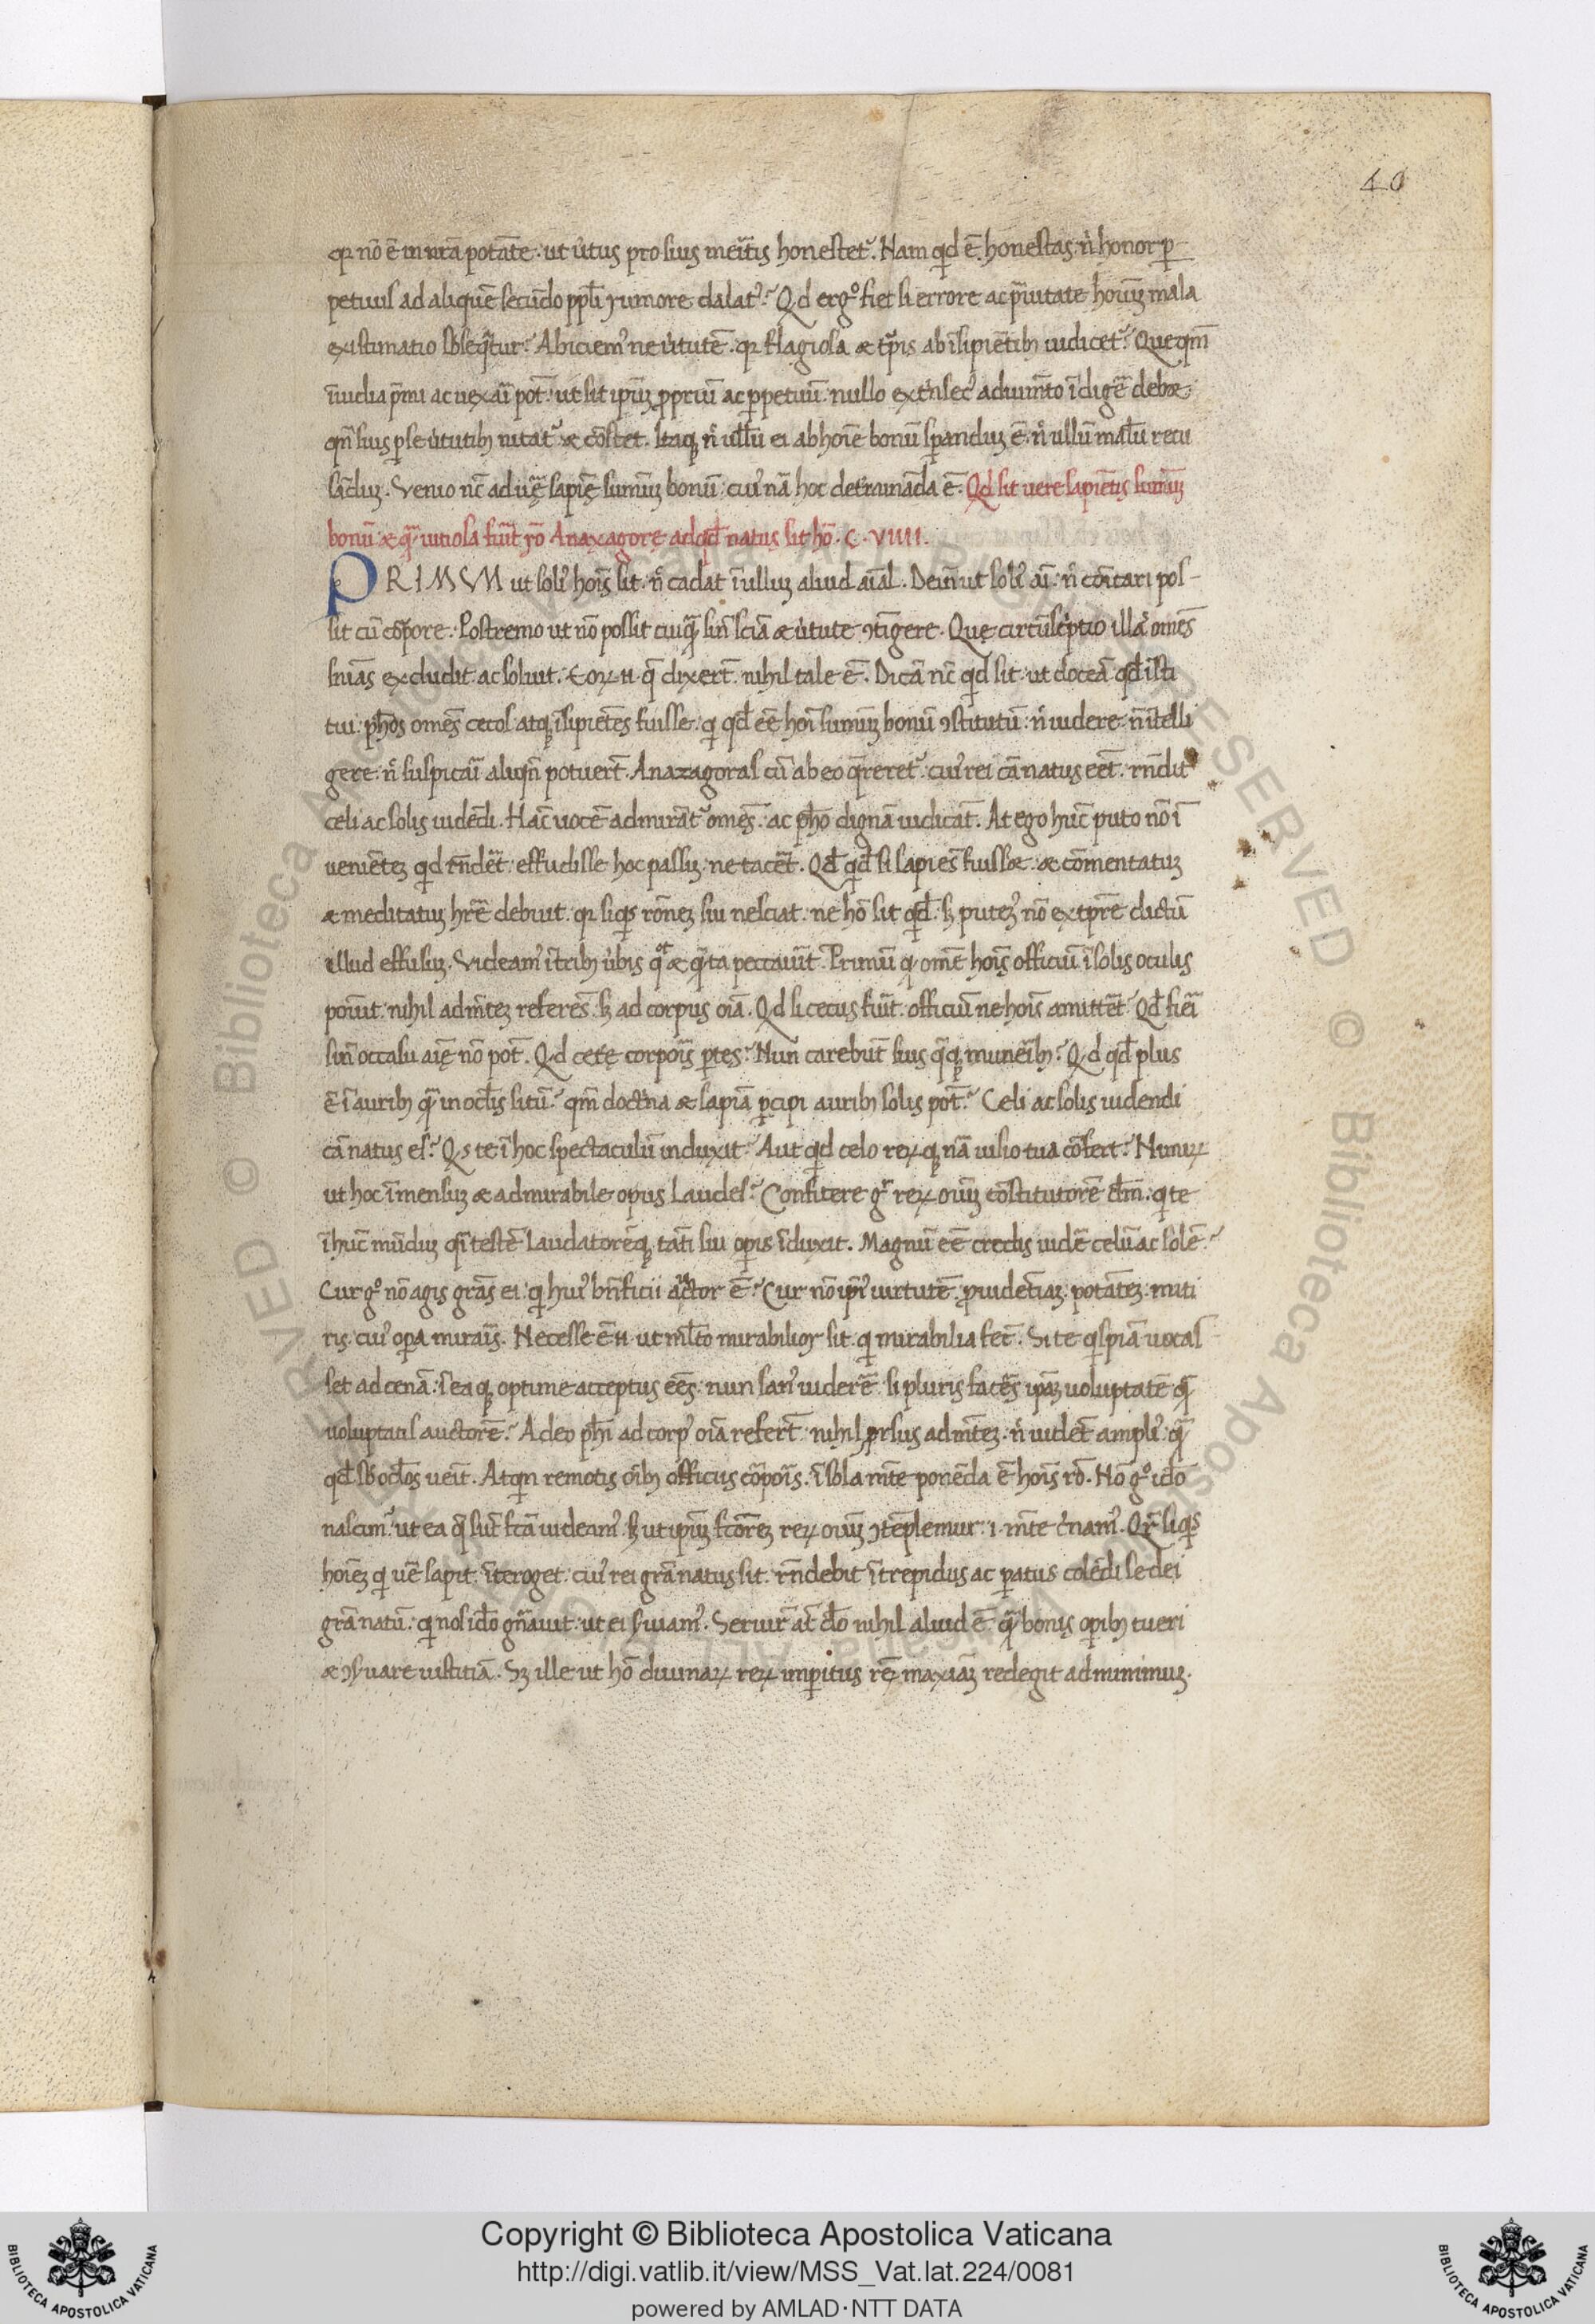 40
qr nō ē in nrā potāte. ut u̓tus pro suis meritis honestet᷑. Nam qid ē honestas n̓ honor p̱
petuus ad aliquē secūdo ppl̄i rumore delat᷑? Qd erg° fiet si errore ac p̱uitate hoīuꝫ mala
existimatio sbseq̄tur? Abiciem᷒ ne u̓tutē. qr flagiosa æ tp̱is ab īsipiētibꝫ iudicet᷑? Que qm̄
īuidia p̄mi ac uexari pot̄. ut sit ipsiuꝫ p̱priū ac p̱petuū. nullo extrīsec᷒ adiumēto īdigē debæ
qm̄ suis p̱ se u̓tutibꝫ nitat᷑ æ cōstet. Itaqꝫ n̓ ullū ei ab hoīe bonū sp̱anduꝫ ē. n̓ ullū malū recu
sāduꝫ. Venio nc̄ ad uę̄ sapię sumūꝫ bonū. cui᷒ nā hoc det̓mināda ē. Qd sit uere sapiētis sumūꝫ
bonū æ q̄ uitiosa fuit rō Anaxagorę ad qd̄ natus sit hō. C. VIIII.
PRIMVM ut soli᷒ hoīs sit. n̓ cadat ī ulluꝫ aliud aīal. Dein̄ ut soli᷒ aī. n̓ cōicari pos-
sit cū corpore. Postremo ut nō possit cuiq̄ sin̄ sciā æ u̓tute ꝯtīgere. Quę circūsc̓ptio illā omēs
snīas excludit ac soluit. Eoꝝ .n. q̄ dixert̄ nihil tale ē. Dicā nc̄ qid sit. ut doceā qd̄ īsti
tui. ph̄os omēs cecos atqꝫ īsipiētes fuisse. qi qd̄ eē hoī sumūꝫ bonū ꝯstitutū. n̓ uidere n̓ ītelli
gere. n̓ suspicari aliqn̄ potuert̄. Anaxagoras cū ab eo q̄reret᷑. cui᷒ rei cā natus eēt. rn̄dit
celi ac solis uidēdi. Hāc uocē admirāt᷑ omēs. ac ph̄o dignā iudicāt. At ego hūc puto nō ī
ueniēteꝫ qid rn̄dēt. effudisse hoc passiꝫ ne tacēt. Qd̄ qid̄ si sapiēs fuissæ. æ cōmentatuꝫ
æ meditatuꝫ hr̄e debuit. qr siqis rōneꝫ sui nesciat. ne hō sit qid̄. sꝫ putem᷒ nō ex tp̱re dictū
illud effusuꝫ. Videam᷒ ī tribꝫ u̓bis qot æ q̄ta peccauit̄. Primū qi omē hoīs officiū ī solis oculis
posuit. nihil ad mēteꝫ referēs. sꝫ ad corpus oīa. Qd si cecus fuit̄. officiū ne hoīs amittēt? Qd̄ fiēi
sin̄ occasu aīę nō pot̄. Qd cet̓ę corporis p̱tes? Nun carebūt suis q̄qꝫ munerībꝫ? Qd qd̄ plus
ē ī auribꝫ q̄ in ocl̄is sitū? qm̄ doctrina æ sapīa p̱cipi auribꝫ solis pot̄? Celi ac solis uidendi
cā natus es? Qis te ī hoc spectaculū induxit? Aut qid celo reꝝ qꝫ nā uisio tua cōfert? Nimiꝝ
ut hoc īmensuꝫ æ admirabile opus Laudes? Confitere g° reꝝ oīuꝫ cōstitutorē dm̄. qi te
ī hūc mūduꝫ q̄si testē laudatorēqꝫ tāti sui op̱is īduxit. Magnū eē credis uidē celū ac solē?
Cur g° nō agis gr̄as ei. qi hui᷒ bn̄ficii auctor ē? Cur nō ipsi᷒ uirtutē. p̱uidētiaꝫ. potāteꝫ. miti
ris. cui᷒ op̱a miraris. Necesse ē .n. ut ml̄to mirabilior sit. qi mirabilia fecit̄. Si te qispiā uocas
set ad cenā. ī ea qꝫ optime acceptus eēs. nun san᷒ uiderē si pluris facēs ipsaꝫ uoluptatē q̄
uoluptatis auctorē? Adeo ph̄i ad corp᷒ oīa refert̄. nihil p̱rsus ad mēteꝫ. n̓ uidet̄ ampli᷒ q̄
qd̄ sb ocl̄os uēit. Atqin remotis oībꝫ officiis corporis. ī sola mēte ponēda ē hoīs rō. Nō g° idō
nascim᷑. ut ea q̄ sūt fc̄a uideam᷒. sꝫ ut ipsūꝫ fc̄oreꝫ reꝝ oīuꝫ ꝯtēplemur. .i. mēte c̓nam᷒. Qr̄ siqis
hoīeꝫ qi uē sapit. īteroget. cui᷒ rei gr̄a natus sit. rn̄debit ītrepidus ac p̱atus colēdi se dei
gr̄a natū. qi nos idō gn̄auit. ut ei s̓uiam᷒. Seruir̄ at̄ dō nihil aliud ē. q̄ bonis op̱ibꝫ tueri
æ ꝯs̓uare iustitiā. Sꝫ ille ut hō diuinaꝝ reꝝ imp̱itus rēꝫ maxīaꝫ redegit ad minimuꝫ.
Copyright © Biblioteca Apostolica Vaticana
http://digi.vatlib.it/view/MSS_Vat.lat.224/0081
powered by AMLAD·NTT DATA